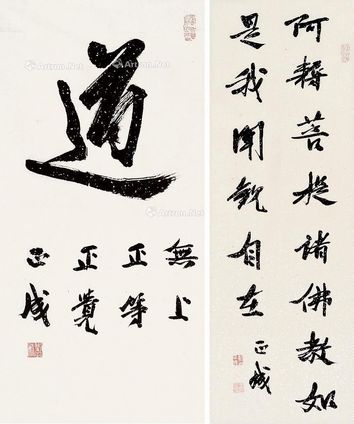 道
無上
正等
正覺
正成
阿耨菩提諸佛教如
是我聞觀自在
正成
Artron.Net
Artron.Net
Artron.Net
Artron.Net